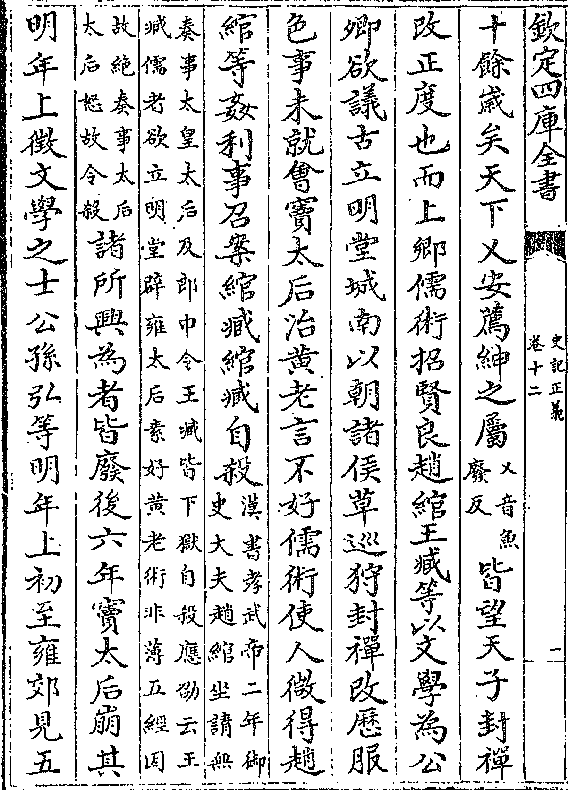 欽定四庫全書
史記正義
卷十二
二
十餘嵗矣天下乂安薦紳之屬
乂音魚
廢反
皆望天子封禪
改正度也而上鄉儒術招賢良趙綰王臧等以文學為公
卿欲議古立明堂城南以朝諸侯草巡狩封禪改厯服
色事未就㑹竇太后治黄老言不好儒術使人微得趙
綰等姦利事召案綰臧綰臧自殺
漢書孝武帝二年御
史大夫趙綰坐請無
奏事太皇太后及郎中令王臧皆下獄自殺應劭云王
臧儒者欲立明堂辟雍太后素好黄老術非薄五經因
故絶奏事太后
太后怒故令殺
諸所興為者皆廢後六年竇太后崩其
明年上徵文學之士公孫弘等明年上初至雍郊見五